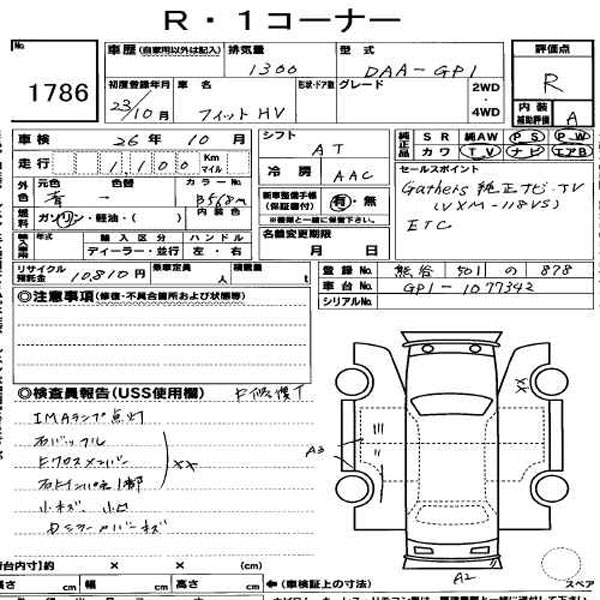 R・1コーナー
No.
1786
車歴(自家用以外は記入)
排気量
1300
型式
DAA-GP1
評価点
R
内装
補助評価
A
初度登録年月
23/10月
車名
フィットHV
形状・ドア数
グレード
2WD
・
4WD
車検
26年 10月
走行
1,100
Km
マイル
シフト
AT
冷房
AAC
純正品
SR 純AW PS PW
カワ TV ナビ エアB
セールスポイント
Gathers 純正ナビ・TV
(VXM-118VS)
ETC
外色
元色
青
色替
→
カラーNo.
B568M
燃料
ガソリン・軽油・( )
内装色
輸入車用
年式
輸入区分
ディーラー・並行
ハンドル
左・右
新車整備手帳
(保証書付)
有・無
※書類と一緒に保管下さい。
名義変更期限
月 日
リサイクル
預託金
10,810円
乗車定員
人
積載量
t
登録No.
熊谷 501 の 878
車台No.
GP1-1077342
シリアルNo.
◎注意事項(修復・不具合箇所および状態等)
◎検査員報告(USS使用欄)
IMAランプ点灯
右バックル
Fクロスメンバー
右Fインパネ1部
XX
小キズ 小凹
Dミラーカバーキズ
A3
XX
A2
スペア
荷台内寸】約 × × (cm)
長さ cm 幅 cm 高さ cm
←(車検証上の寸法)